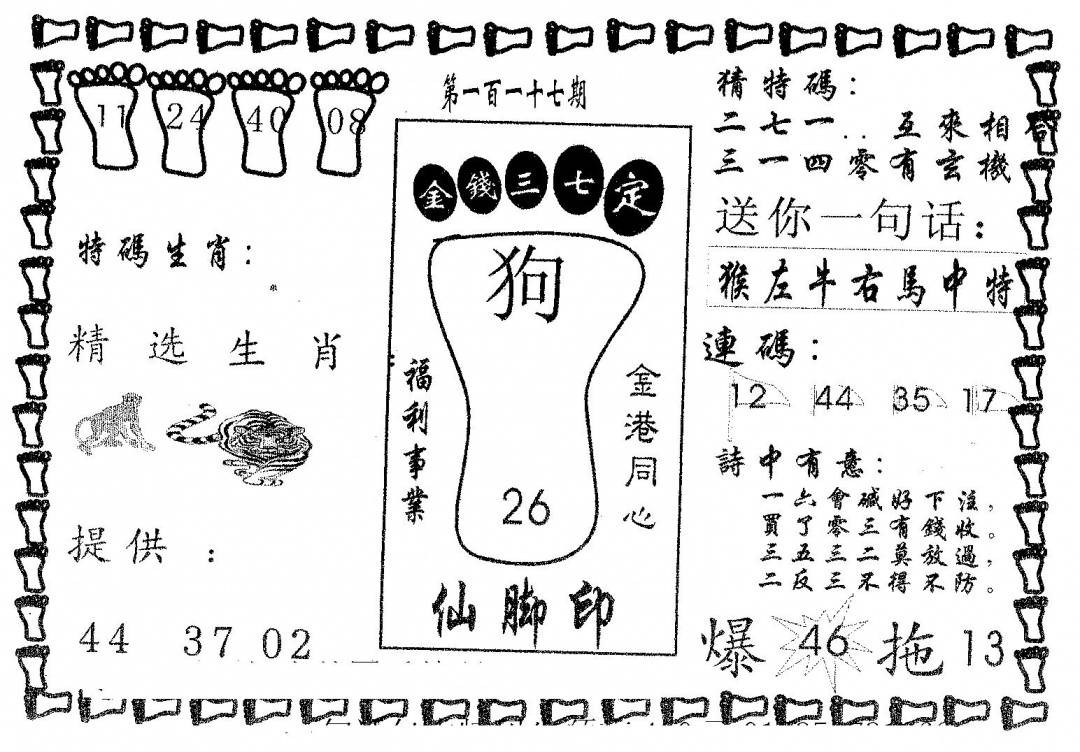 第一百一十七期
11 24 40 08
特碼生肖：
精选生肖：
提供：
44 37 02
金錢三七定
狗
26
福利事業
金港同心
仙脚印
猜特碼：
二七一..互來相合
三一四零有玄機
送你一句话：
猴左牛右馬中特
連碼：
12 44 35 17
詩中有意：
一六會碱好下注，
買了零三有錢收。
三五三二莫放過，
二反三不得不防。
爆 46 拖 13